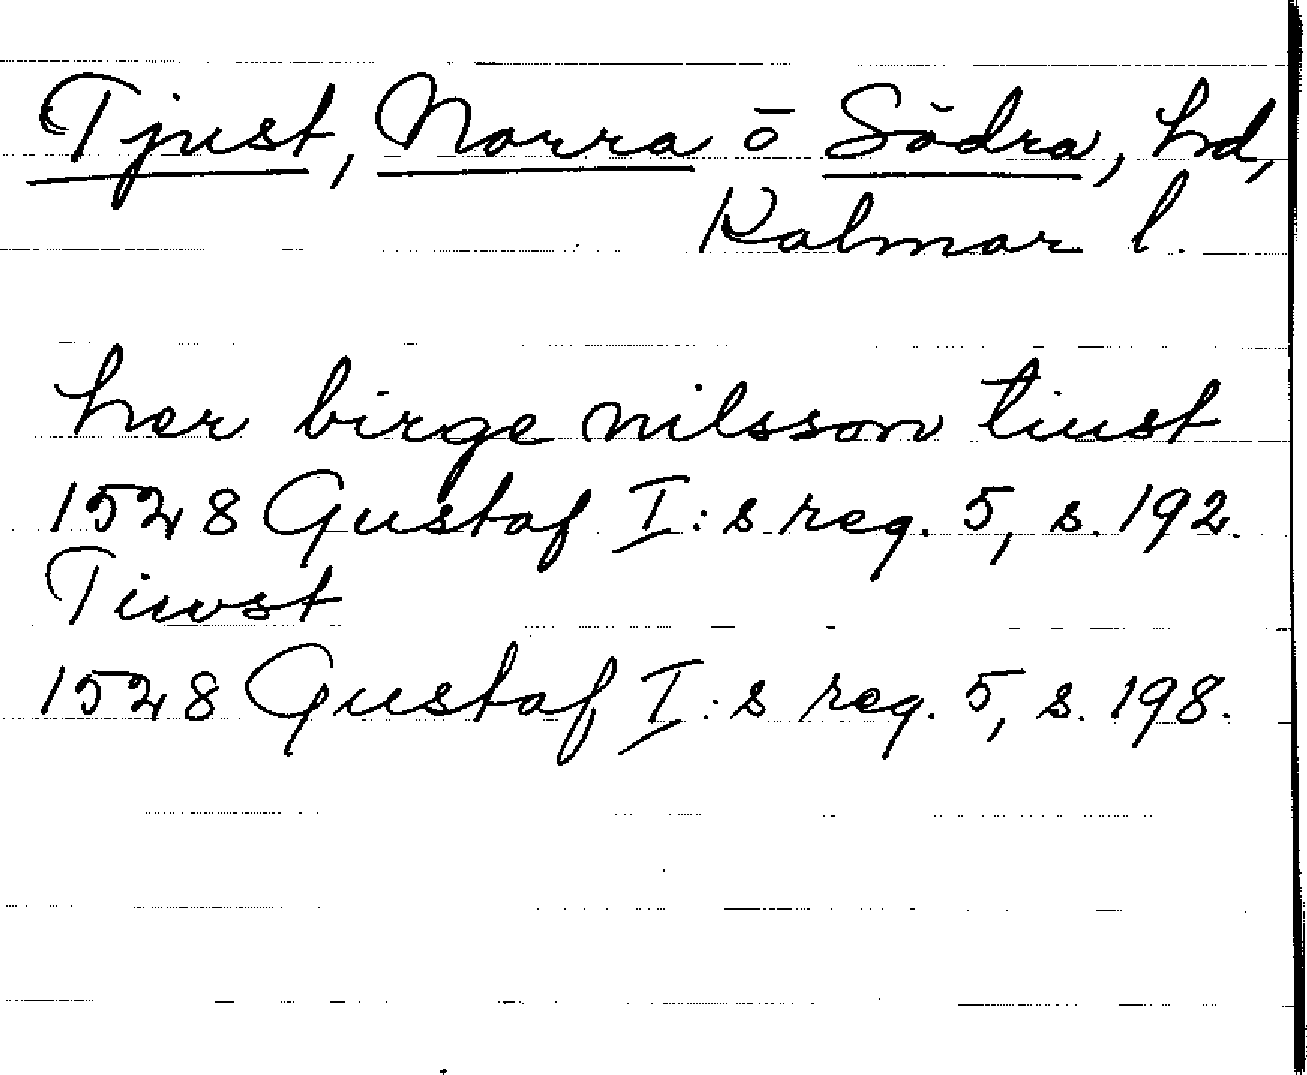 Tjust, Norra ō Södra, hd,
Kalmar l.
her birge nilsson tiust
1528 Gustaf I:s reg. 5, s. 192.
Tiwst
1528 Gustaf I:s reg. 5, s. 198.